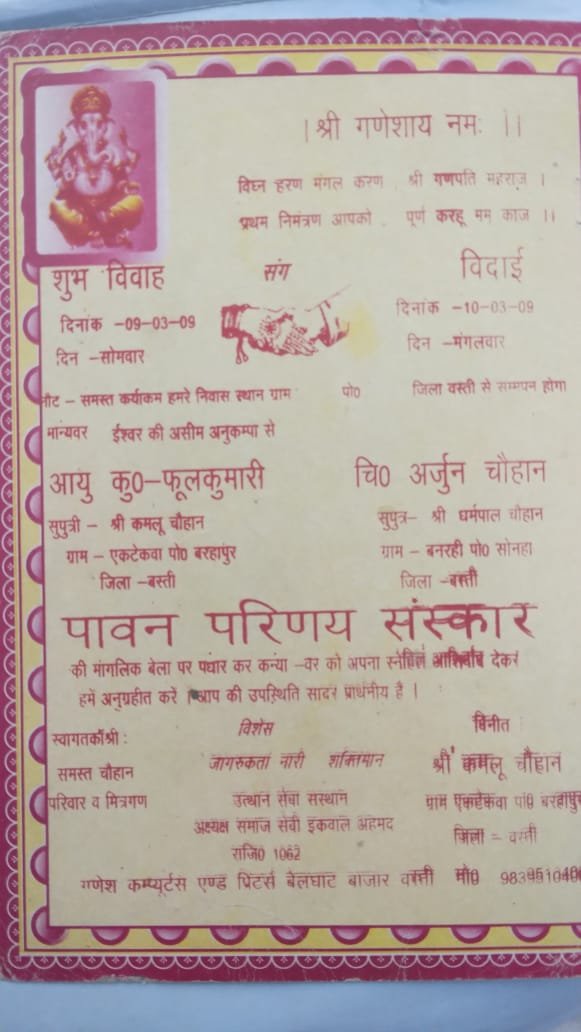 । श्री गणेशाय नमः ।।
विघ्न हरण मंगल करण , श्री गणपति महराज ।
प्रथम निमंत्रण आपको , पूर्ण करहू मम काज ।।
शुभ विवाह संग विदाई
दिनांक -09-03-09 दिनांक -10-03-09
दिन -सोमवार दिन -मंगलवार
नोट - समस्त कर्याकम हमरे निवास स्थान ग्राम पो0 जिला वस्ती से सम्मपन होगा
मान्यवर ईश्वर की असीम अनुकम्पा से
आयु कु0-फूलकुमारी चि0 अर्जुन चौहान
सुपुत्री- श्री कमलू चौहान सुपुत्र- श्री धर्मपाल चौहान
ग्राम - एकटेकवा पो0 बरहापुर ग्राम - बनरही पो0 सोनहा
जिला -बस्ती जिला -बस्ती
पावन परिणय संस्कार
की मांगलिक बेला पर पधार कर कन्या -वर को अपना देकर
हमें अनुग्रहीत करें ।आप की उपस्थिति सादर प्रार्थनीय है ।
स्वागतकॉंश्री : विशेस विनीत :
समस्त चौहान जागरुकता नारी शक्तिमान श्री कमलू चौहान
परिवार व मित्रगण उत्थान सेवा सस्थान ग्राम एकटेकवा पो0 बरहापुर
अध्यक्ष समाज सेवी इकवाल अहमद जिला = वस्ती
राजि0 1062
गणेश कम्प्यूर्टस एण्ड प्रिंटर्स बेलघाट बाजार वस्ती मो0